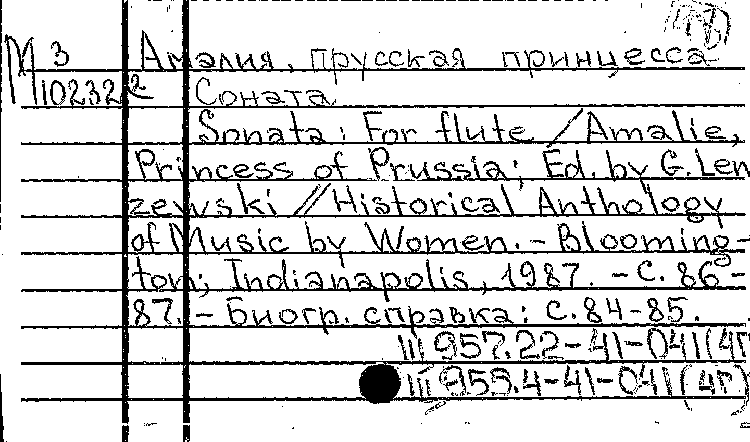 М 3 Амалия, прусская принцесса
10232 2 Соната
Sonata: For flute / Amalie,
Princess of Prussia; Ed. by G. Len
zewski // Historical Anthology
of Music by Women. - Blooming-
ton; Indianapolis, 1987. - С. 86-
87. - Биогр. справка: с. 84-85.
957.22-41-041(4Г
953.4-41-041(4Г)